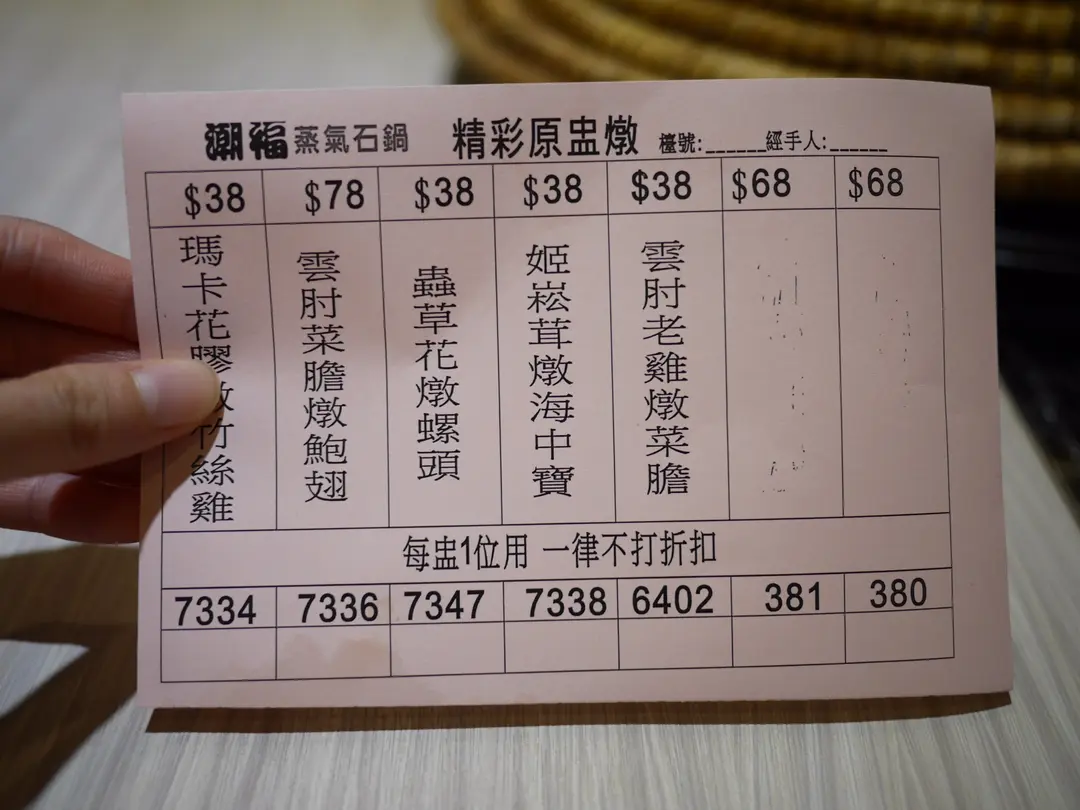 潮福蒸氣石鍋 精彩原盅燉 檯號:______經手人:______
$38 $78 $38 $38 $38 $68 $68
瑪卡花膠燉竹絲雞
雲肘菜膽燉鮑翅
蟲草花燉螺頭
姬崧茸燉海中寶
雲肘老雞燉菜膽
每盅1位用 一律不打折扣
7334 7336 7347 7338 6402 381 380